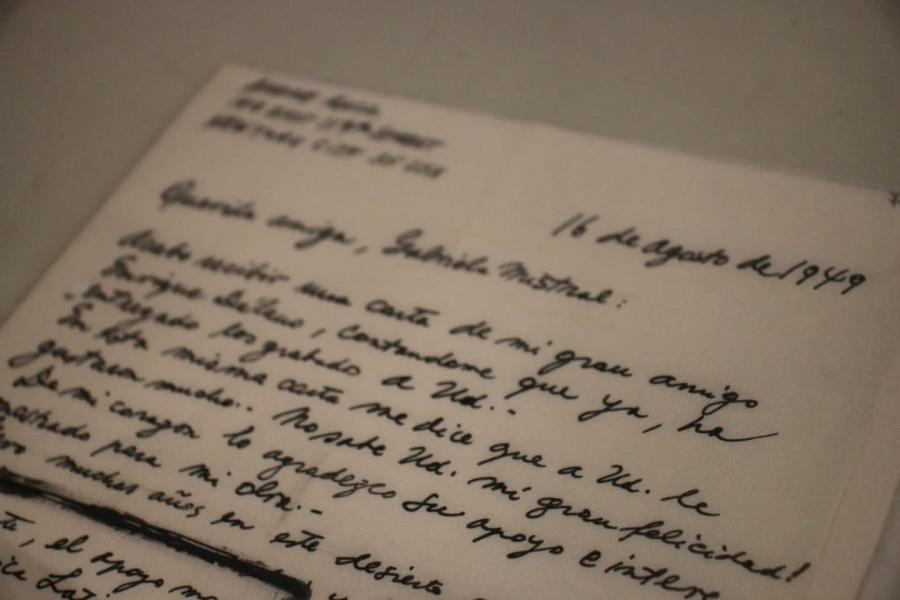 16 de agosto de 1949
Querida amiga, Gabriela Mistral:
Acabo recibir una carta de mi gran amigo
Enrique, contandome que ya, ha
entregado los grabado a Ud..-
En esta misma carta me dice que a Ud. le
gustaron mucho.. No sabe Ud. mi gran felicidad!
De mi corazon lo agradezco su apoyo e intere
mostrado para mi obra.-
muchos años en este desierto
te, el apoyo